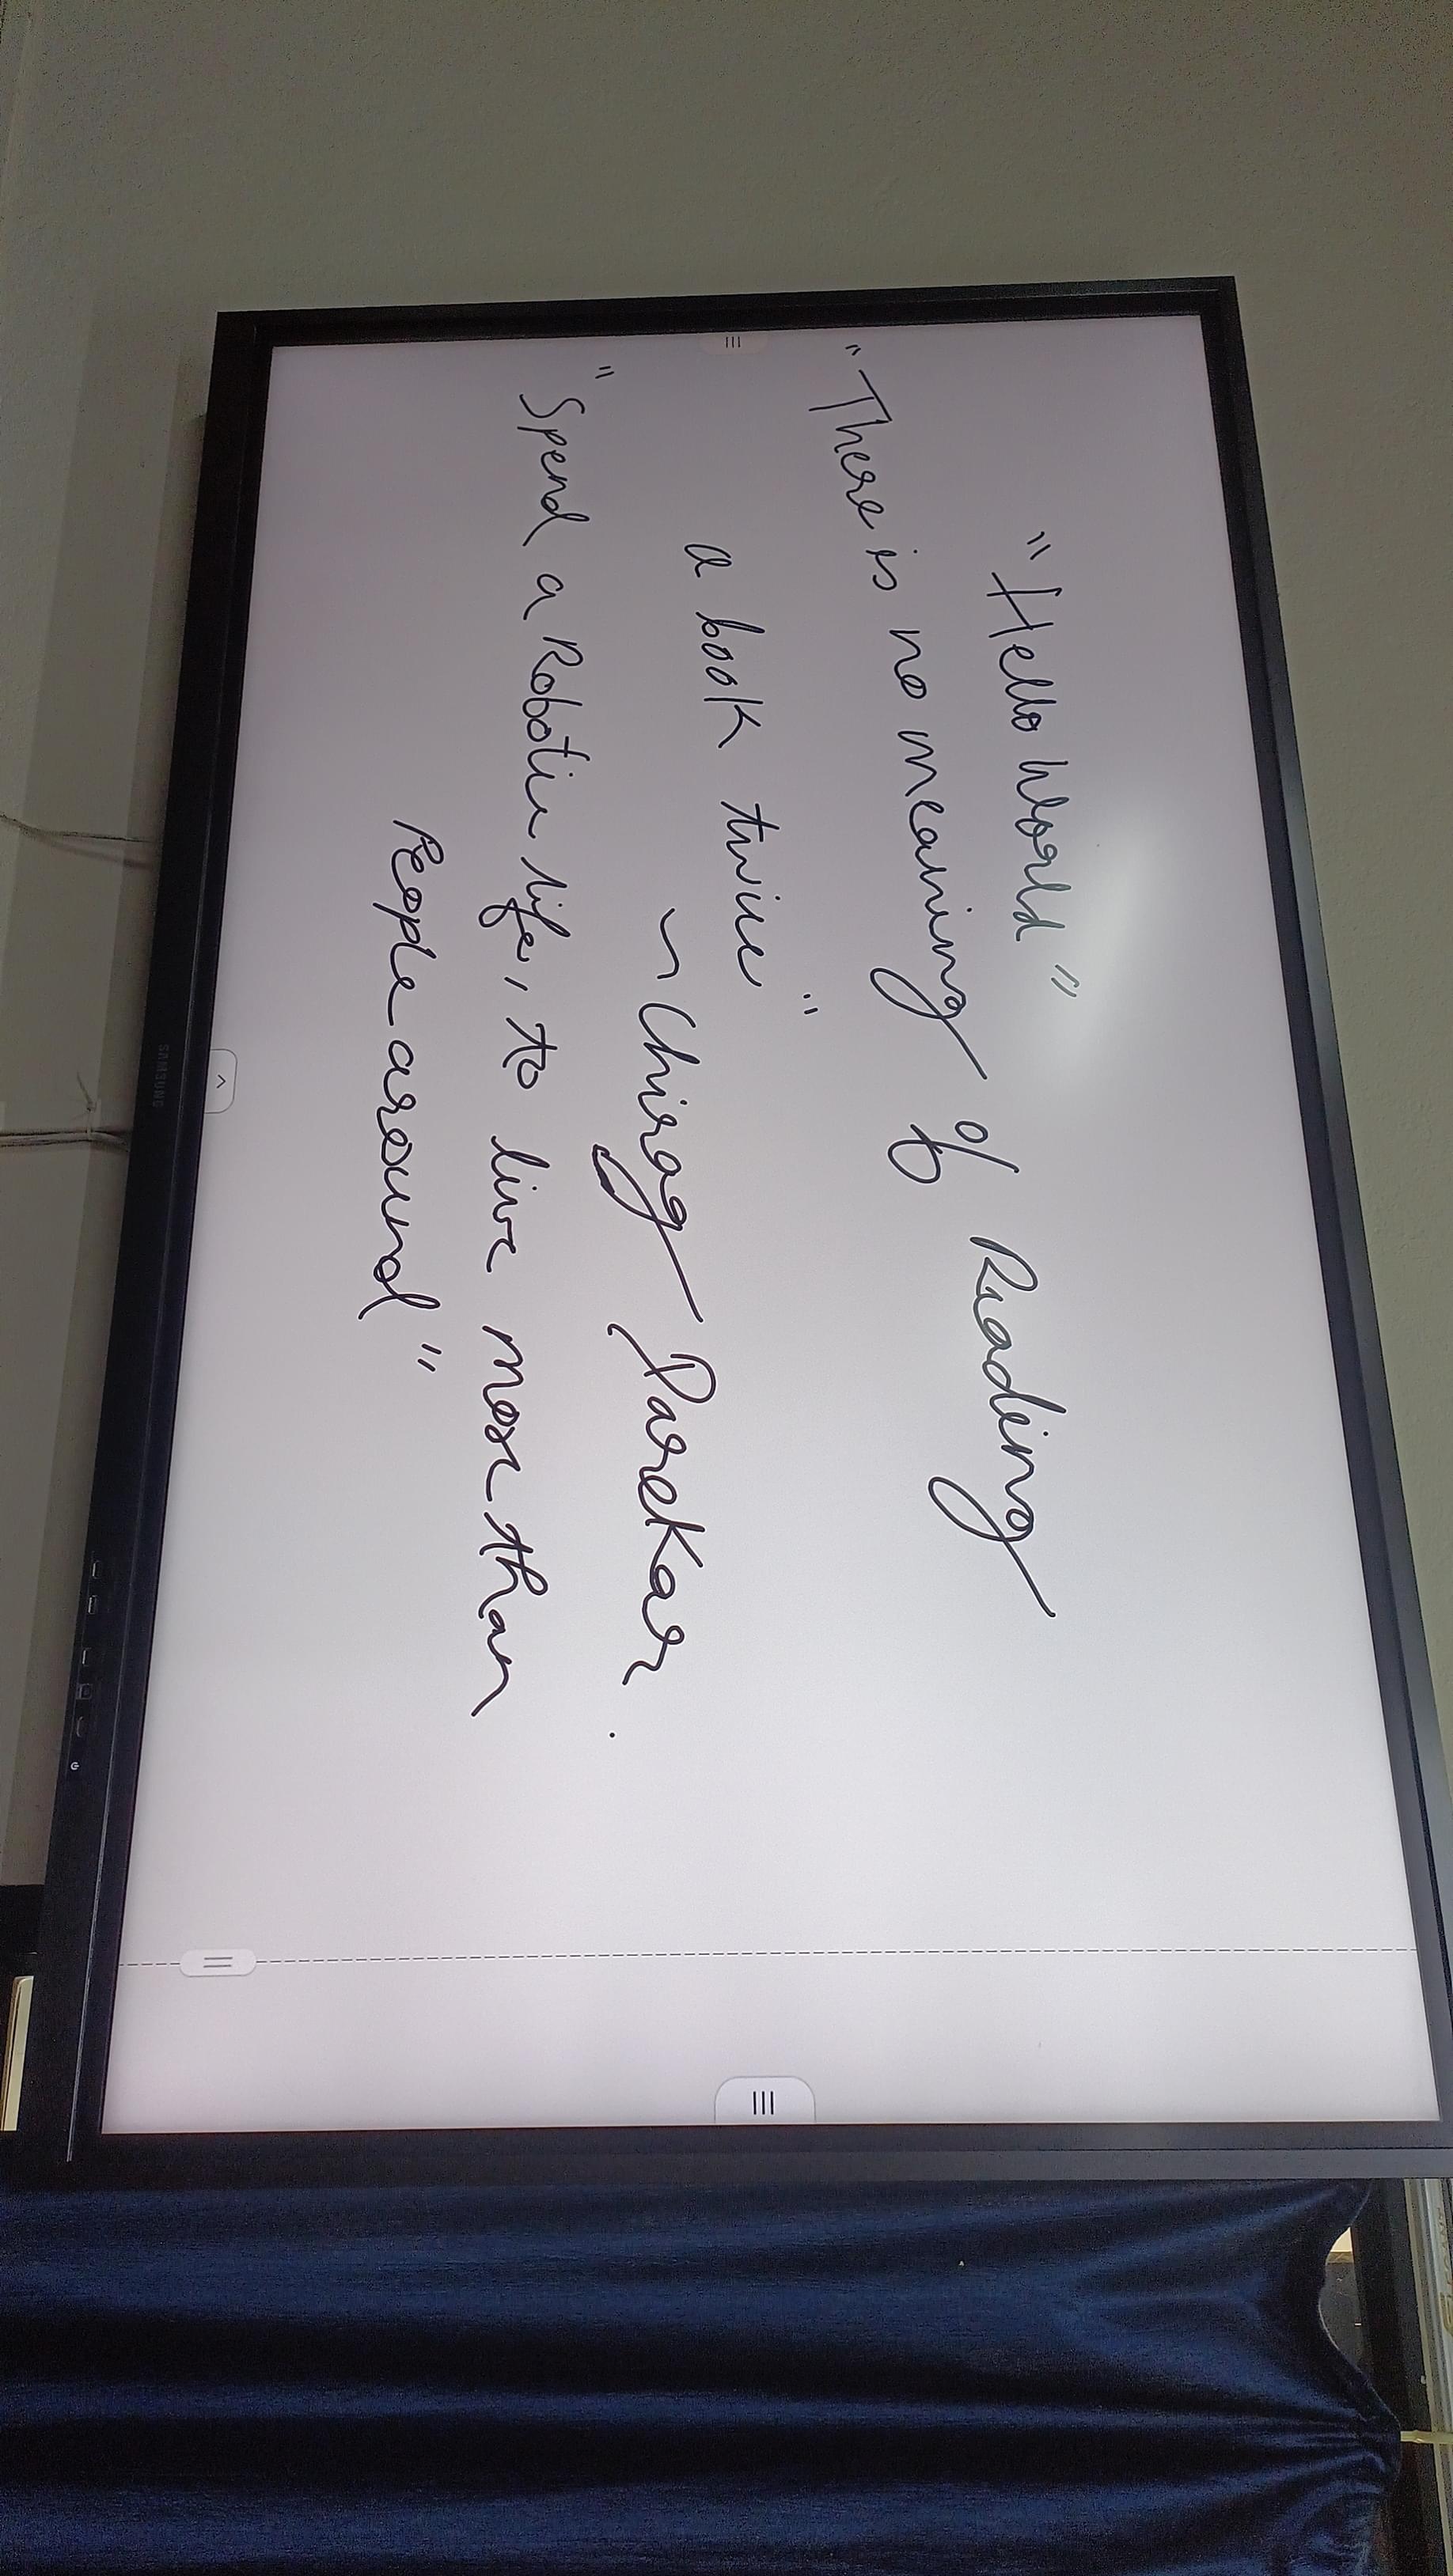 "Hello World"
"There is no meaning of Reading
a book twice"
~ Chirag Parekar.
"Spend a Robotic life, to live more than
People around"
SAMSUNG